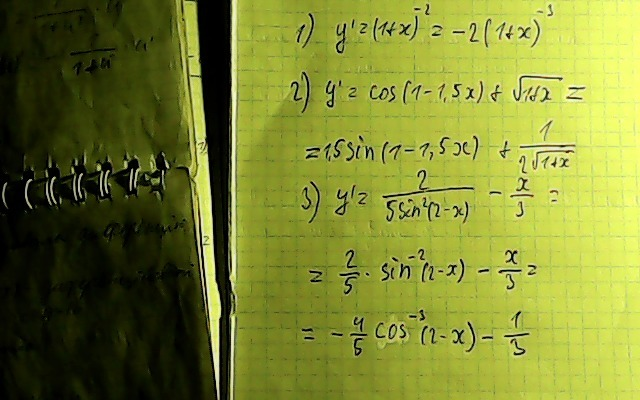 1) y' = (1+x)^-2 = -2(1+x)^-3
2) y' = cos(1-1,5x) + √1+x =
= 1,5sin(1-1,5x) + 1/(2√1+x)
3) y' = 2/(5sin²(2-x)) - x/3 =
= 2/5 · sin^-2(2-x) - x/3 =
= -4/5 cos^-3(2-x) - 1/3